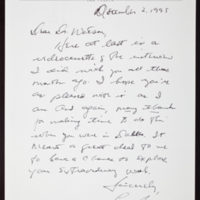 December 2, 1985
Dear Dr Watson,
Here at last is a
videocassette of the interview
I did with you all those
months ago. I hope you're
as pleased with it as I
am. And again, many thanks
for making time to do this
when you were in Dallas. It
meant a great deal to me
to have a chance to explore
your extraordinary work.
Sincerely,